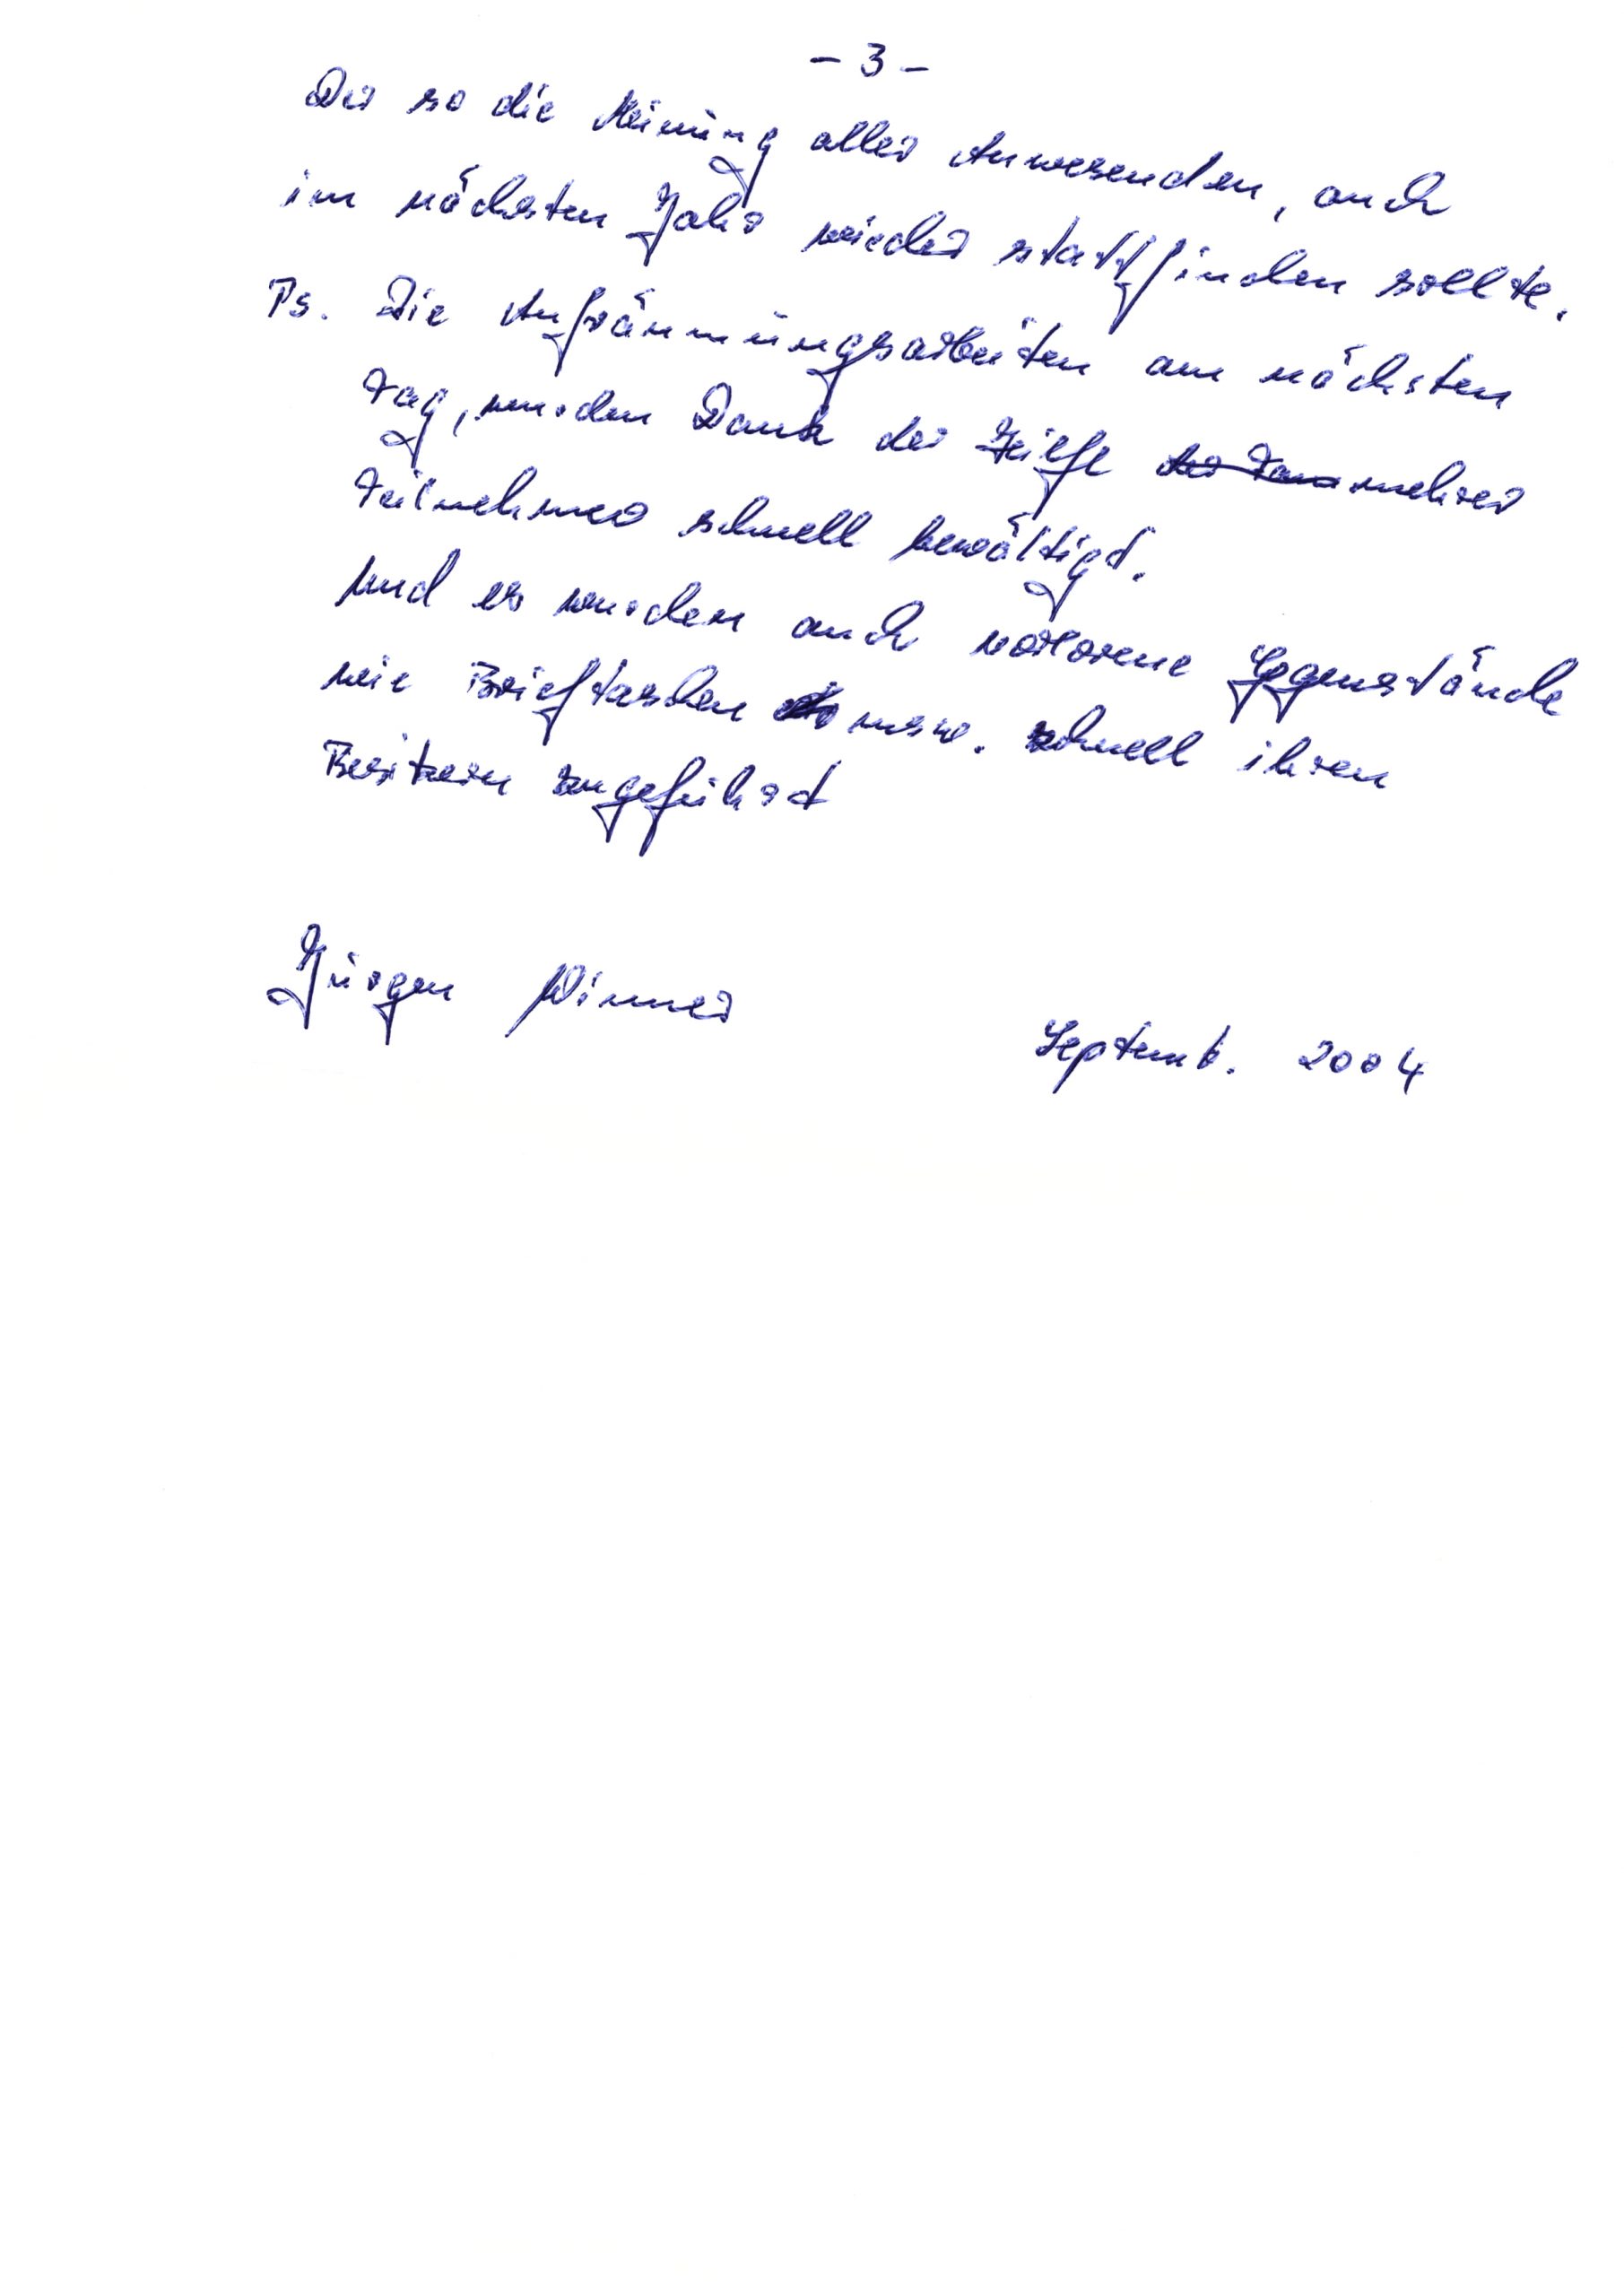 - 3 -
Der so die Meinung aller Anwesenden, auch
im nächsten Jahr wieder stattfinden sollte.
Ps. Die Aufräumungsarbeiten am nächsten
Tag, wurden Dank der Hilfe mehrer
Teilnehmer schnell bewältigt.
Und es wurden auch verlorene Gegenstände
wie Brieftaschen usw. schnell ihren
Besitzern zugeführt
Jürgen Winner
Septemb. 2004